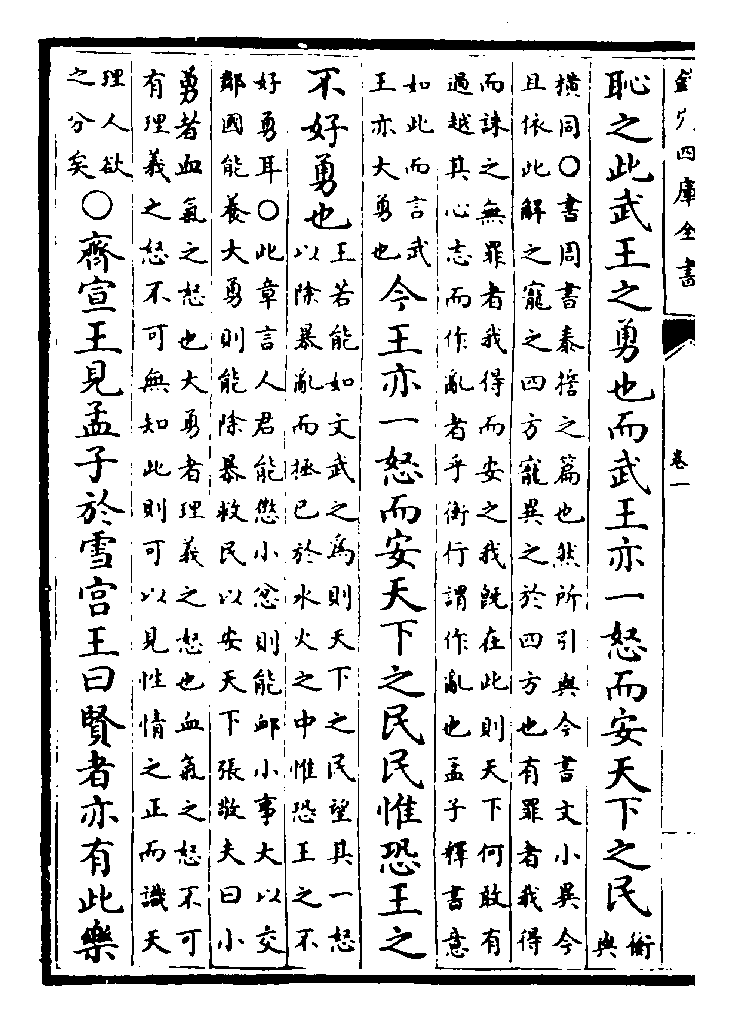 欽定四庫全書
卷一
恥之此武王之勇也而武王亦一怒而安天下之民衡與
橫同〇書周書泰誓之篇也然所引與今書文小異今
且依此解之寵之四方寵異之於四方也有罪者我得
而誅之無罪者我得而安之我既在此則天下何敢有
過越其心志而作亂者乎衡行謂作亂也孟子釋書意
如此而言武
王亦大勇也
今王亦一怒而安天下之民民惟恐王之
不好勇也
王若能如文武之爲則天下之民望其一怒
以除暴亂而拯己於水火之中惟恐王之不
好勇耳〇此章言人君能懲小忿則能卹小事大以交
鄰國能養大勇則能除暴救民以安天下張敬夫曰小
勇者血氣之怒也大勇者理義之怒也血氣之怒不可
有理義之怒不可無知此則可以見性情之正而識天
理人欲
之分矣
〇齊宣王見孟子於雪宮王曰賢者亦有此樂